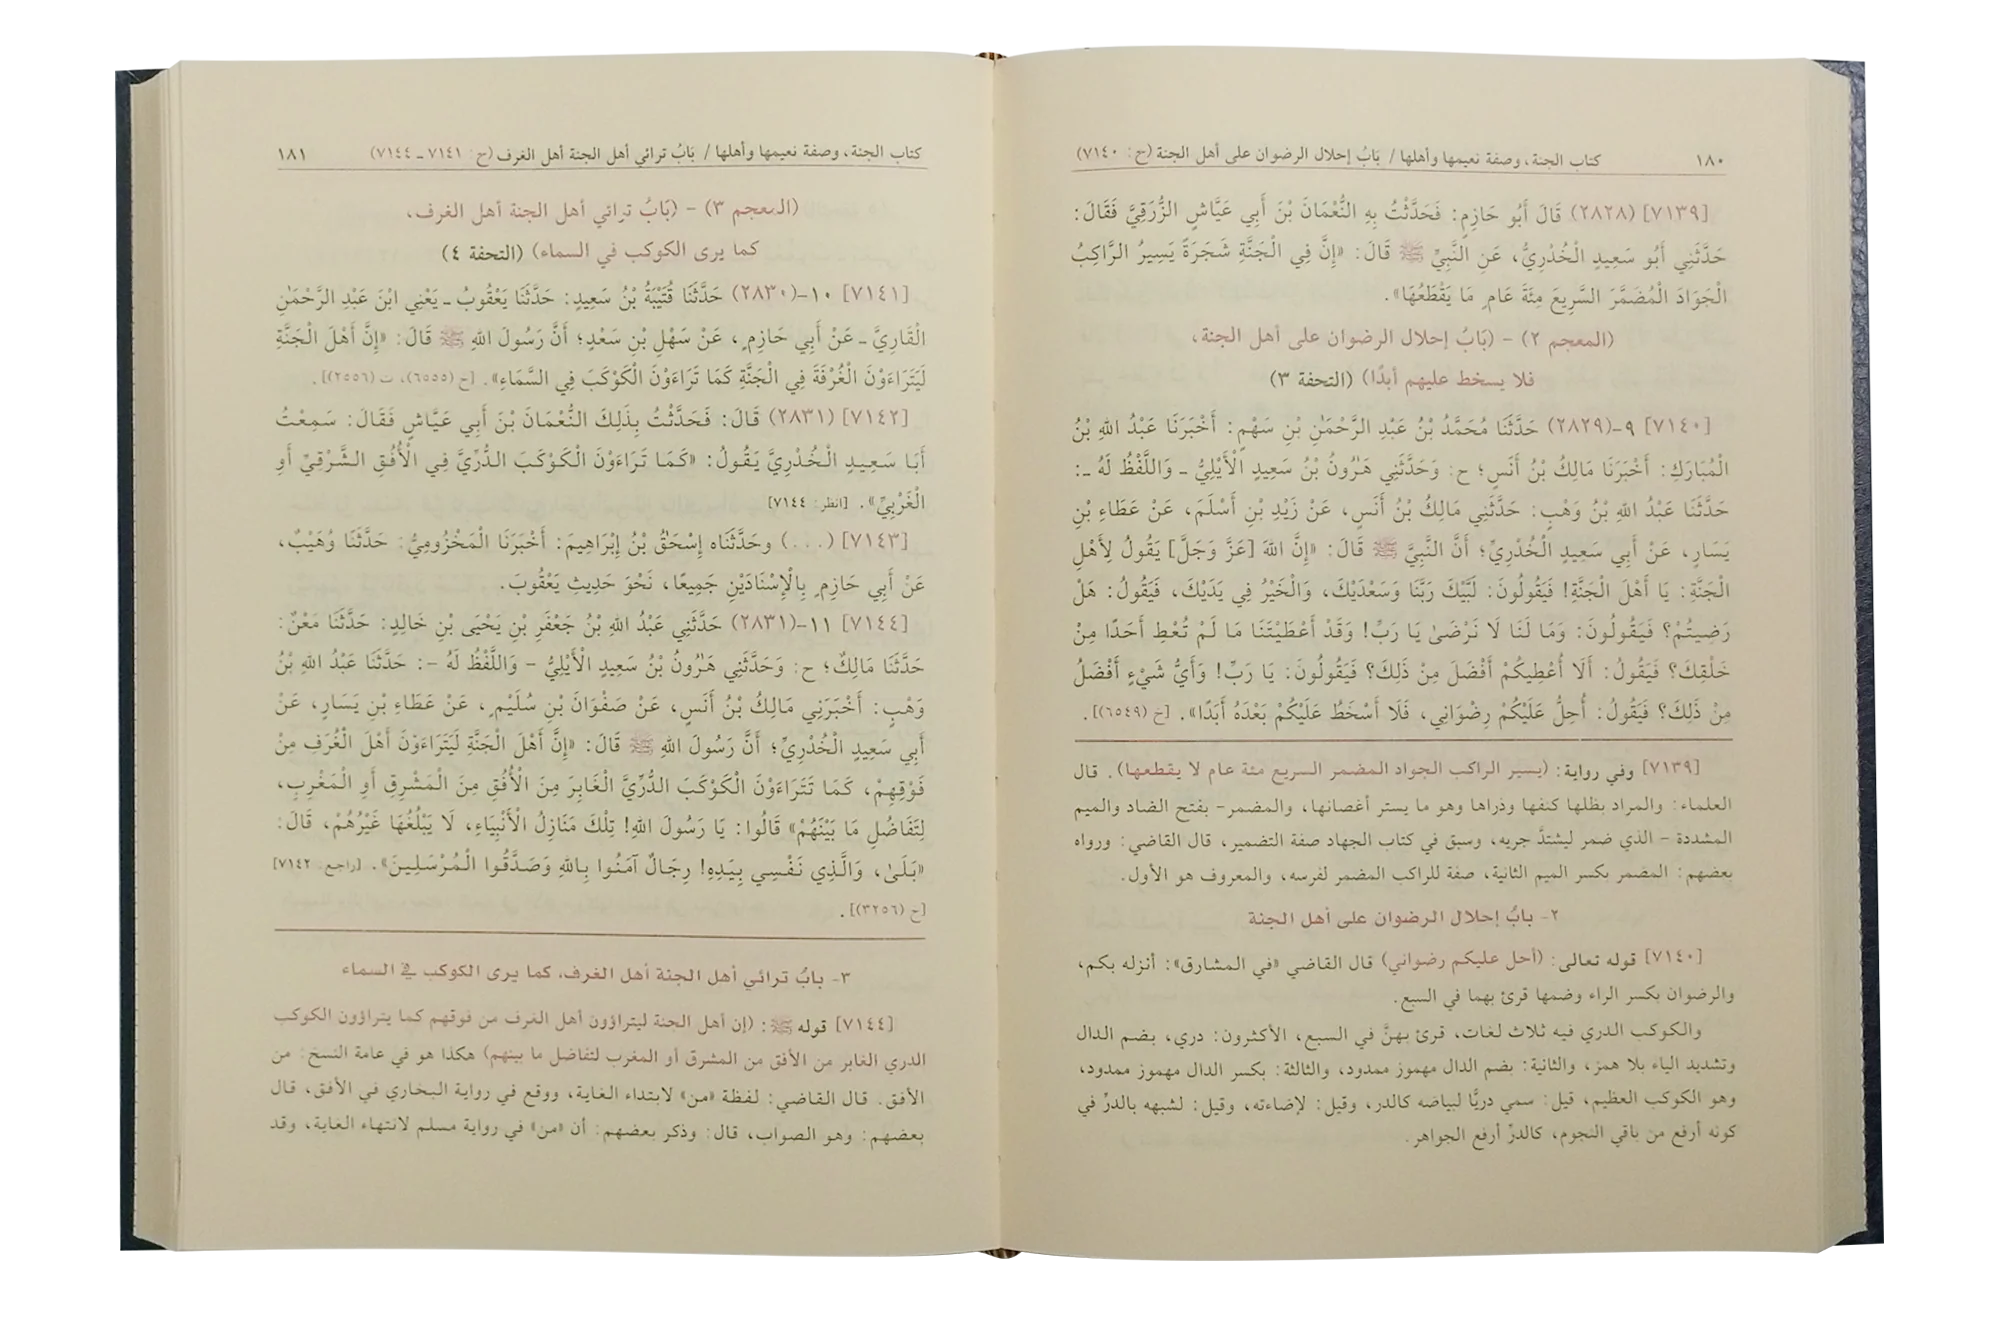 ١٨٠ كتاب الجنة، وصفة نعيمها وأهلها / بَابُ إحلال الرضوان على أهل الجنة (ح: ٧١٤٠)
[٧١٣٩] (٢٨٢٨) قَالَ أَبُو حَازِمٍ: فَحَدَّثْتُ بِهِ النُّعْمَانَ بْنَ أَبِي عَيَّاشٍ الزُّرَقِيَّ فَقَالَ:
حَدَّثَنِي أَبُو سَعِيدٍ الْخُدْرِيُّ، عَنِ النَّبِيِّ ﷺ قَالَ: «إِنَّ فِي الْجَنَّةِ شَجَرَةً يَسِيرُ الرَّاكِبُ
الْجَوَادَ الْمُضَمَّرَ السَّرِيعَ مِئَةَ عَامٍ، مَا يَقْطَعُهَا».
(المعجم ٢) - (بَابُ إحلال الرضوان على أهل الجنة،
فلا يسخط عليهم أبدًا) (التحفة ٣)
[٧١٤٠] ٩-(٢٨٢٩) حَدَّثَنَا مُحَمَّدُ بْنُ عَبْدِ الرَّحْمَٰنِ بْنِ سَهْمٍ: أَخْبَرَنَا عَبْدُ اللهِ بْنُ
الْمُبَارَكِ: أَخْبَرَنَا مَالِكُ بْنُ أَنَسٍ؛ ح: وَحَدَّثَنِي هَٰرُونُ بْنُ سَعِيدٍ الْأَيْلِيُّ ـ وَاللَّفْظُ لَهُ ـ:
حَدَّثَنَا عَبْدُ اللهِ بْنُ وَهْبٍ: حَدَّثَنِي مَالِكُ بْنُ أَنَسٍ، عَنْ زَيْدِ بْنِ أَسْلَمَ، عَنْ عَطَاءِ بْنِ
يَسَارٍ، عَنْ أَبِي سَعِيدٍ الْخُدْرِيِّ؛ أَنَّ النَّبِيَّ ﷺ قَالَ: «إِنَّ اللهَ [عَزَّ وَجَلَّ] يَقُولُ لِأَهْلِ
الْجَنَّةِ: يَا أَهْلَ الْجَنَّةِ! فَيَقُولُونَ: لَبَّيْكَ رَبَّنَا وَسَعْدَيْكَ، وَالْخَيْرُ فِي يَدَيْكَ، فَيَقُولُ: هَلْ
رَضِيتُمْ؟ فَيَقُولُونَ: وَمَا لَنَا لَا نَرْضَىٰ يَا رَبِّ! وَقَدْ أَعْطَيْتَنَا مَا لَمْ تُعْطِ أَحَدًا مِنْ
خَلْقِكَ؟ فَيَقُولُ: أَلَا أُعْطِيكُمْ أَفْضَلَ مِنْ ذَلِكَ؟ فَيَقُولُونَ: يَا رَبِّ! وَأَيُّ شَيْءٍ أَفْضَلُ
مِنْ ذَلِكَ؟ فَيَقُولُ: أُحِلُّ عَلَيْكُمْ رِضْوَانِي، فَلَا أَسْخَطُ عَلَيْكُمْ بَعْدَهُ أَبَدًا». [خ (٦٥٤٩)].
[٧١٣٩] وفي رواية: (يسير الراكب الجواد المضمر السريع مئة عام لا يقطعها). قال
العلماء: والمراد بظلها كنفها وذراها وهو ما يستر أغصانها، والمضمر- بفتح الضاد والميم
المشددة - الذي ضمر ليشتدَّ جريه، وسبق في كتاب الجهاد صفة التضمير، قال القاضي: ورواه
بعضهم: المضمر بكسر الميم الثانية، صفة للراكب المضمر لفرسه، والمعروف هو الأول.
٢- بابُ إحلال الرضوان على أهل الجنة
[٧١٤٠] قوله تعالى: (أحل عليكم رضواني) قال القاضي «في المشارق»: أنزله بكم،
والرضوان بكسر الراء وضمها قرئ بهما في السبع.
والكوكب الدري فيه ثلاث لغات، قرئ بهنَّ في السبع، الأكثرون: دري، بضم الدال
وتشديد الياء بلا همز، والثانية: بضم الدال مهموز ممدود، والثالثة: بكسر الدال مهموز ممدود،
وهو الكوكب العظيم، قيل: سمي دريًّا لبياضه كالدر، وقيل: لإضاءته، وقيل: لشبهه بالدرِّ في
كونه أرفع من باقي النجوم، كالدرِّ أرفع الجواهر.
كتاب الجنة، وصفة نعيمها وأهلها / بَابُ ترائي أهل الجنة أهل الغرف (ح: ٧١٤١ ـ ٧١٤٤) ١٨١
(المعجم ٣) - (بَابُ ترائي أهل الجنة أهل الغرف،
كما يرى الكوكب في السماء) (التحفة ٤)
[٧١٤١] ١٠-(٢٨٣٠) حَدَّثَنَا قُتَيْبَةُ بْنُ سَعِيدٍ: حَدَّثَنَا يَعْقُوبُ ـ يَعْنِي ابْنَ عَبْدِ الرَّحْمَٰنِ
الْقَارِيَّ ـ عَنْ أَبِي حَازِمٍ، عَنْ سَهْلِ بْنِ سَعْدٍ؛ أَنَّ رَسُولَ اللهِ ﷺ قَالَ: «إِنَّ أَهْلَ الْجَنَّةِ
لَيَتَرَاءَوْنَ الْغُرْفَةَ فِي الْجَنَّةِ كَمَا تَرَاءَوْنَ الْكَوْكَبَ فِي السَّمَاءِ». [خ (٦٥٥٥)، ت (٢٥٥٦)].
[٧١٤٢] (٢٨٣١) قَالَ: فَحَدَّثْتُ بِذَلِكَ النُّعْمَانَ بْنَ أَبِي عَيَّاشٍ فَقَالَ: سَمِعْتُ
أَبَا سَعِيدٍ الْخُدْرِيَّ يَقُولُ: «كَمَا تَرَاءَوْنَ الْكَوْكَبَ الدُّرِّيَّ فِي الْأُفُقِ الشَّرْقِيِّ أَوِ
الْغَرْبِيِّ». [انظر: ٧١٤٤]
[٧١٤٣] (...) وحَدَّثَنَاه إِسْحَٰقُ بْنُ إِبْرَاهِيمَ: أَخْبَرَنَا الْمَخْزُومِيُّ: حَدَّثَنَا وُهَيْبٌ،
عَنْ أَبِي حَازِمٍ بِالْإِسْنَادَيْنِ جَمِيعًا، نَحْوَ حَدِيثِ يَعْقُوبَ.
[٧١٤٤] ١١-(٢٨٣١) حَدَّثَنِي عَبْدُ اللهِ بْنُ جَعْفَرِ بْنِ يَحْيَى بْنِ خَالِدٍ: حَدَّثَنَا مَعْنٌ:
حَدَّثَنَا مَالِكٌ؛ ح: وَحَدَّثَنِي هَٰرُونُ بْنُ سَعِيدٍ الْأَيْلِيُّ - وَاللَّفْظُ لَهُ -: حَدَّثَنَا عَبْدُ اللهِ بْنُ
وَهْبٍ: أَخْبَرَنِي مَالِكُ بْنُ أَنَسٍ، عَنْ صَفْوَانَ بْنِ سُلَيْمٍ، عَنْ عَطَاءِ بْنِ يَسَارٍ، عَنْ
أَبِي سَعِيدٍ الْخُدْرِيِّ؛ أَنَّ رَسُولَ اللهِ ﷺ قَالَ: «إِنَّ أَهْلَ الْجَنَّةِ لَيَتَرَاءَوْنَ أَهْلَ الْغُرَفِ مِنْ
فَوْقِهِمْ، كَمَا تَتَرَاءَوْنَ الْكَوْكَبَ الدُّرِّيَّ الْغَابِرَ مِنَ الْأُفُقِ مِنَ الْمَشْرِقِ أَوِ الْمَغْرِبِ،
لِتَفَاضُلِ مَا بَيْنَهُمْ» قَالُوا: يَا رَسُولَ اللهِ! تِلْكَ مَنَازِلُ الْأَنْبِيَاءِ، لَا يَبْلُغُهَا غَيْرُهُمْ، قَالَ:
«بَلَىٰ، وَالَّذِي نَفْسِي بِيَدِهِ! رِجَالٌ آمَنُوا بِاللهِ وَصَدَّقُوا الْمُرْسَلِينَ». [راجع: ٧١٤٢]
[خ (٣٢٥٦)].
٣- بابُ ترائي أهل الجنة أهل الغرف، كما يرى الكوكب في السماء
[٧١٤٤] قوله ﷺ: (إن أهل الجنة ليتراؤون أهل الغرف من فوقهم كما يتراؤون الكوكب
الدري الغابر من الأفق من المشرق أو المغرب لتفاضل ما بينهم) هكذا هو في عامة النسخ: من
الأفق. قال القاضي: لفظة «من» لابتداء الغاية، ووقع في رواية البخاري في الأفق، قال
بعضهم: وهو الصواب، قال: وذكر بعضهم: أن «من» في رواية مسلم لانتهاء الغاية، وقد